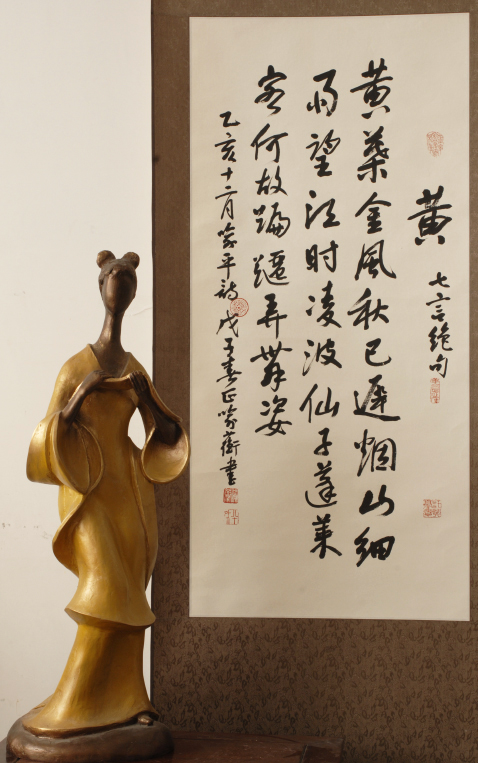 黄 七言绝句
黄葉金風秋已遲烟山细
雨望江时凌波仙子蓬莱
客何故蹁躚弄舞姿
乙亥十二月喻平詩戊子春正喻蘅書